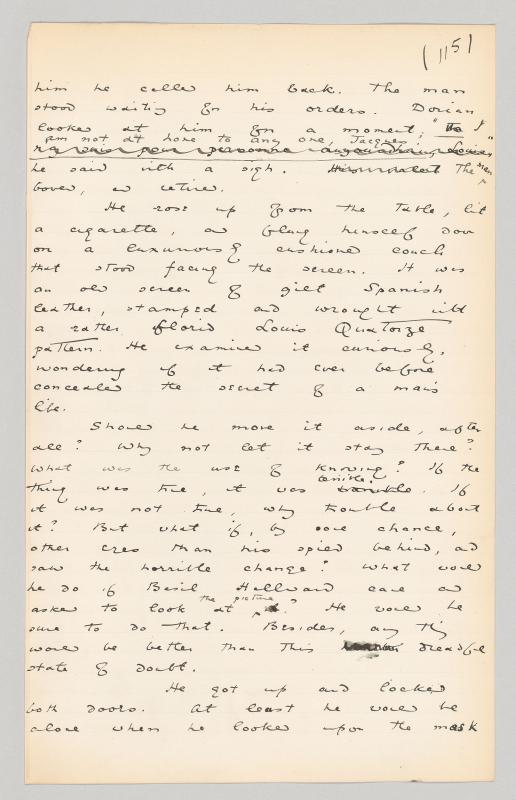 (115)
him he called him back. The man
stood waiting for his orders. Dorian
looked at him for a moment, "I
am not at home to any one, Jacques"
he said with a sigh. The man
bowed, and retired.
He rose up from the table, lit
a cigarette, and flung himself down
on a luxuriously cushioned couch
that stood facing the screen. It was
an old screen of gilt Spanish
leather, stamped and wrought with
a rather florid Louis Quatorze
pattern. He examined it curiously,
wondering if it had ever before
concealed the secret of a man's
life.
Should he move it aside, after
all? Why not let it stay there?
What was the use of knowing? If the
terrible.
thing was true, it was terrible. If
it was not true, why trouble about
it? But what if, by some chance,
other eyes than his spied behind, and
saw the horrible change? What would
he do if Basil Hallward came and
the picture
asked to look at ? He would be
sure to do that. Besides, any thing
would be better than this dreadful
state of doubt.
He got up and locked
both doors. At least he would be
alone when he looked upon the mask